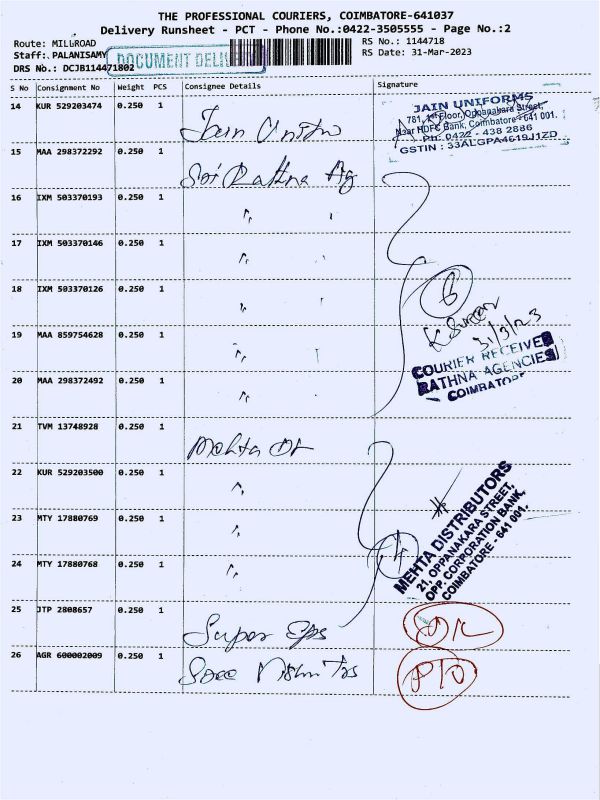 THE PROFESSIONAL COURIERS, COIMBATORE-641037
Delivery Runsheet - PCT - Phone No.:0422-3505555 - Page No.:2
Route: MILLROAD
RS No.: 1144718
Staff: PALANISAMY
DOCUMENT DELI
RS Date: 31-Mar-2023
DRS No.: DCJB114471802
S No Consignment No Weight PCS Consignee Details Signature
14 KUR 529203474 0.250 1
Jain Unifo
JAIN UNIFORMS
781, 1st Floor, Oppanakara Street,
Near HDFC Bank, Coimbatore - 641 001.
Ph: 0422 - 438 2886
GSTIN : 33ALGPA4619J1ZD
15 MAA 298372292 0.250 1
Sri Rathna Ag
16 IXM 503370193 0.250 1
"
17 IXM 503370146 0.250 1
"
18 IXM 503370126 0.250 1
"
6
31/3/23
19 MAA 859754628 0.250 1
"
COURIER RECEIVED
RATHNA AGENCIES
COIMBATOR
20 MAA 298372492 0.250 1
"
21 TVM 13748928 0.250 1
Mehta Dt
22 KUR 529203500 0.250 1
"
23 MTY 17880769 0.250 1
"
24 MTY 17880768 0.250 1
"
4
MEHTA DISTRIBUTORS
21, OPPANAKARA STREET,
OPP. CORPORATION BANK,
COIMBATORE - 641 001.
25 JTP 2808657 0.250 1
Super Eps
26 AGR 600002009 0.250 1
Sree